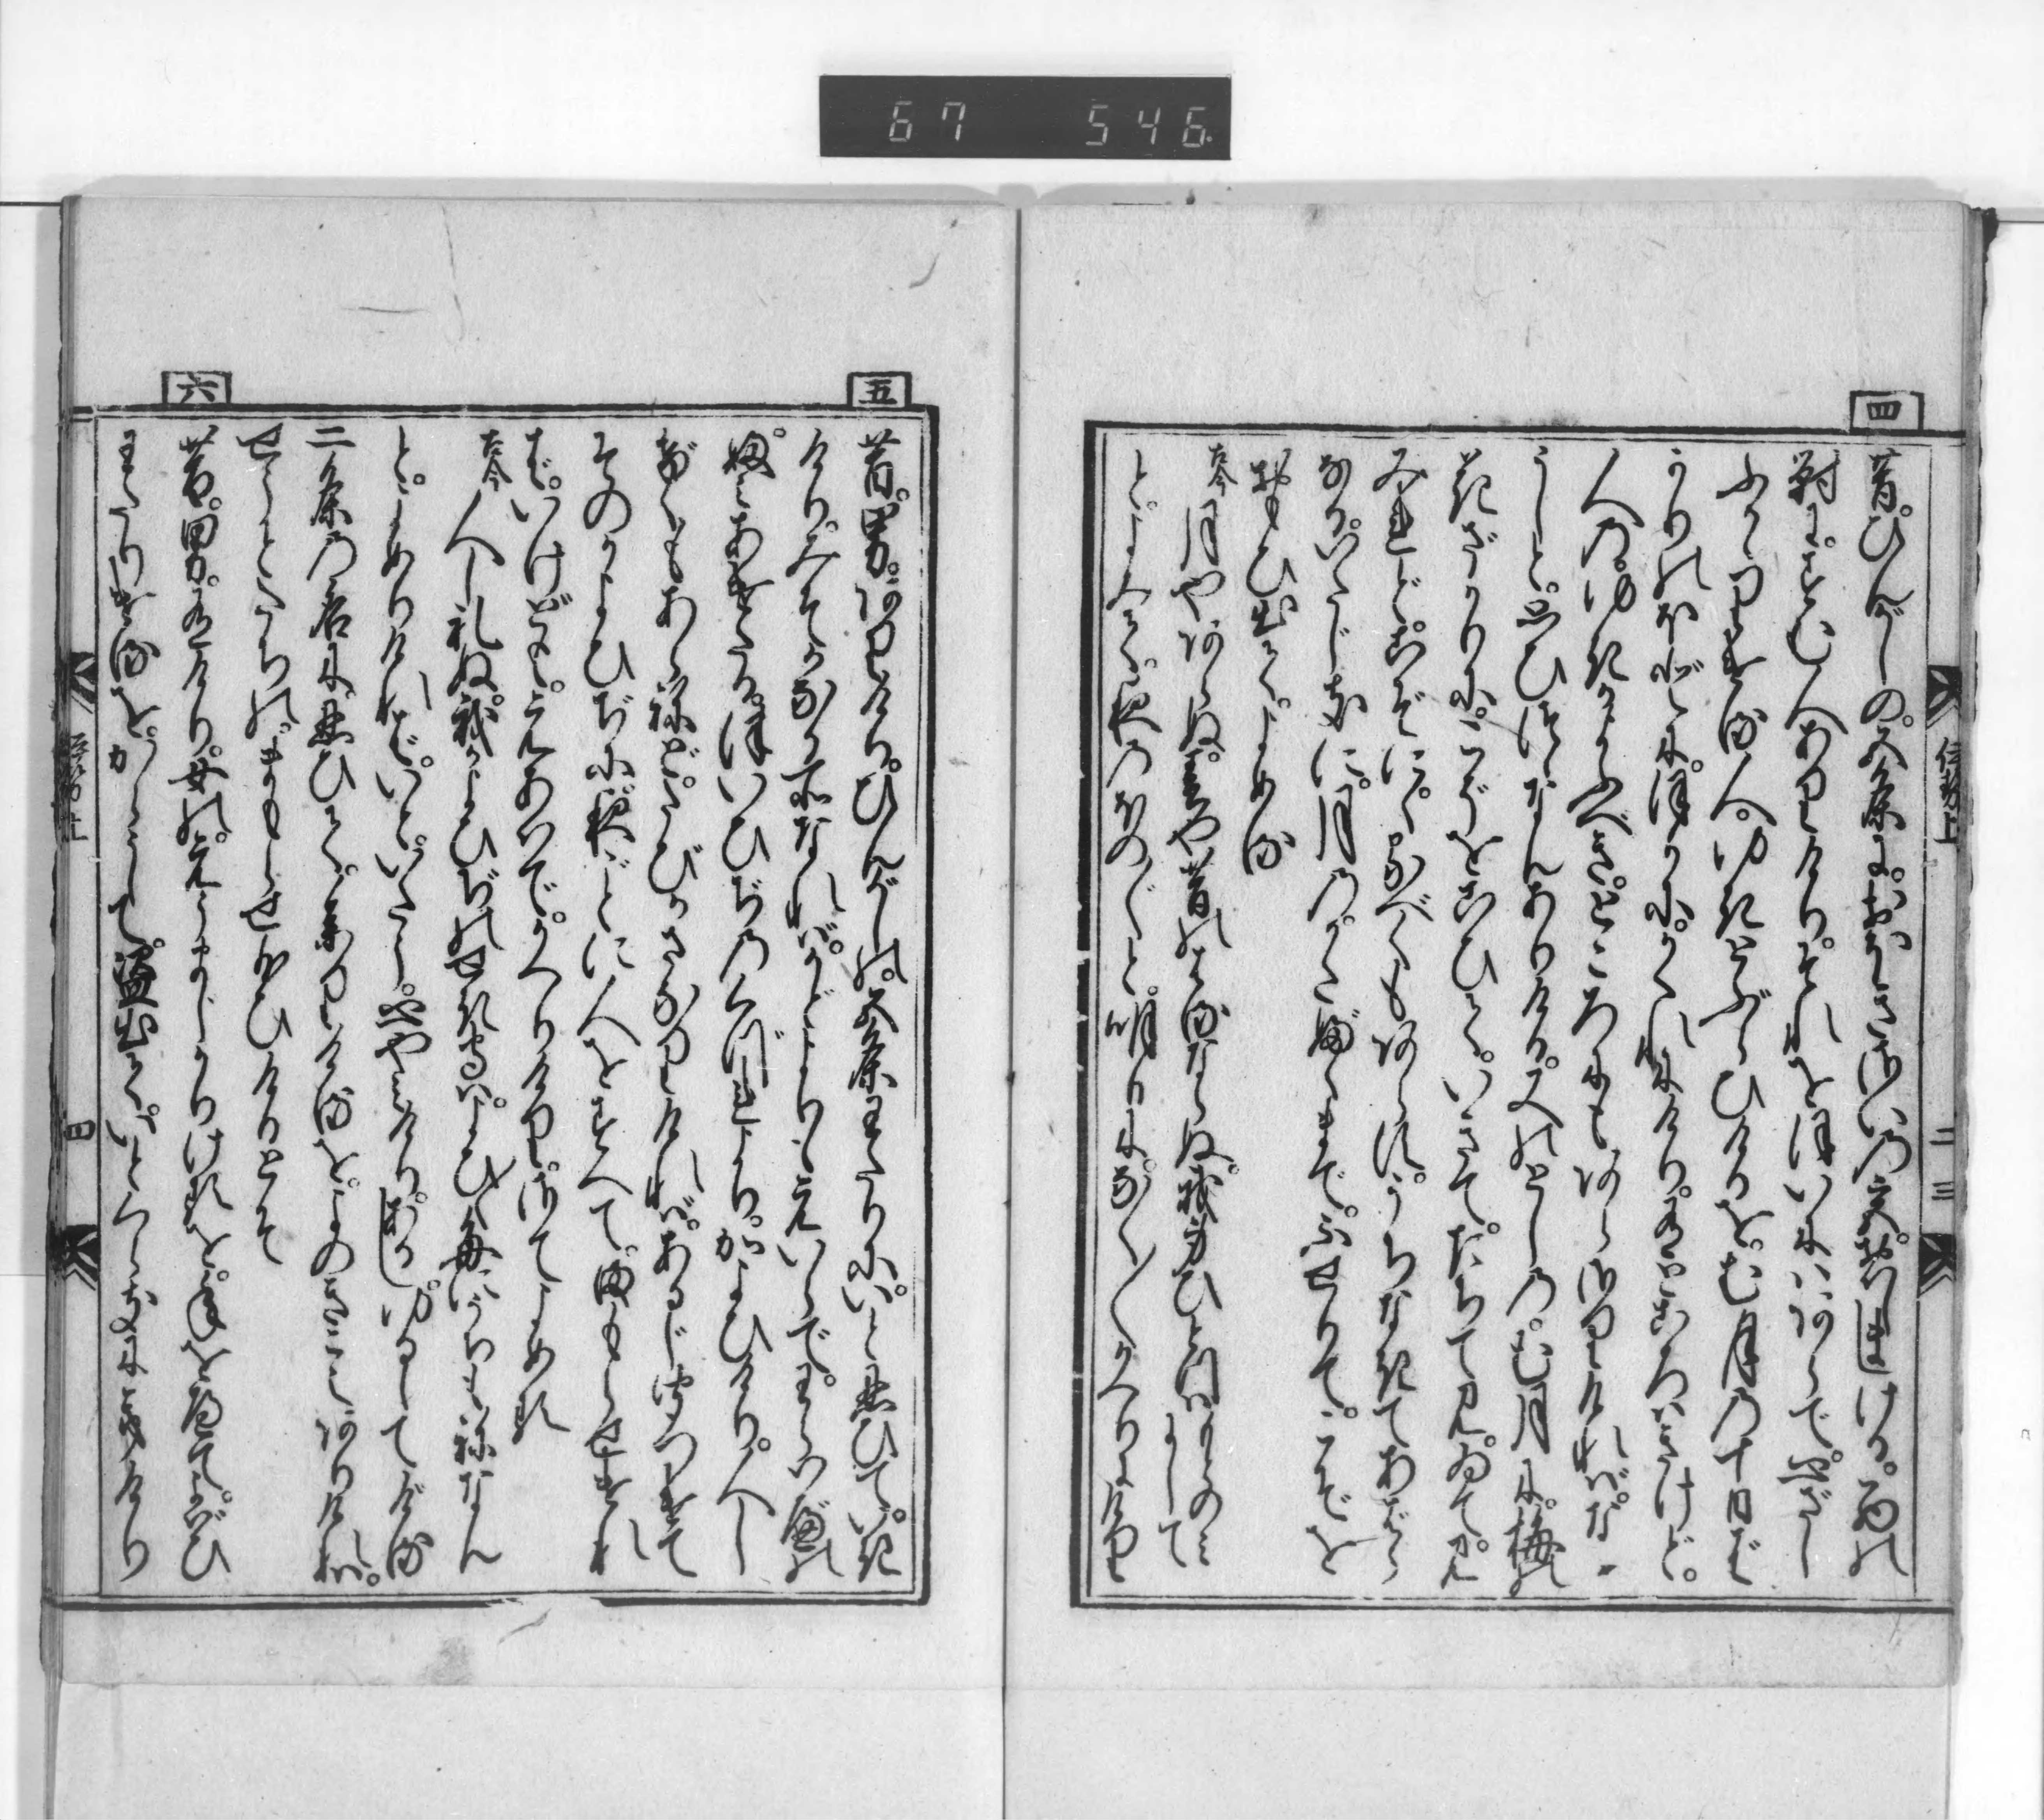 67 546
四
昔。ひんがしの。五条に。おほきさいの宮。おはしましける。西の
對に。すむ人ありけり。それをほいにはあらで。心ざし
ふかゝりける人。ゆきとぶらひけるを。む月の十日ば
かりのほどに。ほかに。かくれにけり。有どころはきけど。
人の。ゆきかよふべき。ところにもあらざりければ。な
うしと。思ひつゝなんありける。又のとしの。む月に。梅の
花ざかりに。こぞをこひて。いきて。たちて見。ゐて見
みれど。こぞに。にるべくもあらず。うちなきてあばら
なる。いたじきに。月の。かたぶくまで。ふせりて。こぞを
おもひ出て。よめる
古今 月やあらぬ。春や昔のはるならぬ。我身ひとつはもとのみ
にして
と。よみて。夜のほのぼのと。明るに。なく〳〵かへりにけり
伊勢上
二 三
五
昔。男。有けり。ひんがしの。五条わたりに。いと忍びて。いき
けり。みそかなる所なれば。かどよりもえいらで。わらはべの
ふみあけたる。ついひぢのくづれより。かよひけり。人し
げくもあらねど。たびかさなりければ。あるじきゝつけて
そのかよひぢに。夜ごとに人をすへて。まもらせけれ
ば。いけども。えあはで。かへりけり。さてよめる
古今 人しれぬ。我かよひぢのせき守は。よひ〳〵毎にうちもねなゝん
と。よめりければ。いと。いたう。心やみけり。あるじ。ゆるしてげる
二条の后に。忍びて。参りけるを。よのきこえありければ。
せうとたちの。まもらせ給ひけるとぞ
六
昔。男。有けり。女の。えうまじかりけるを。年を経て。よばひ
わたりけるを。からうして。盗出て。いとくらきにきけり